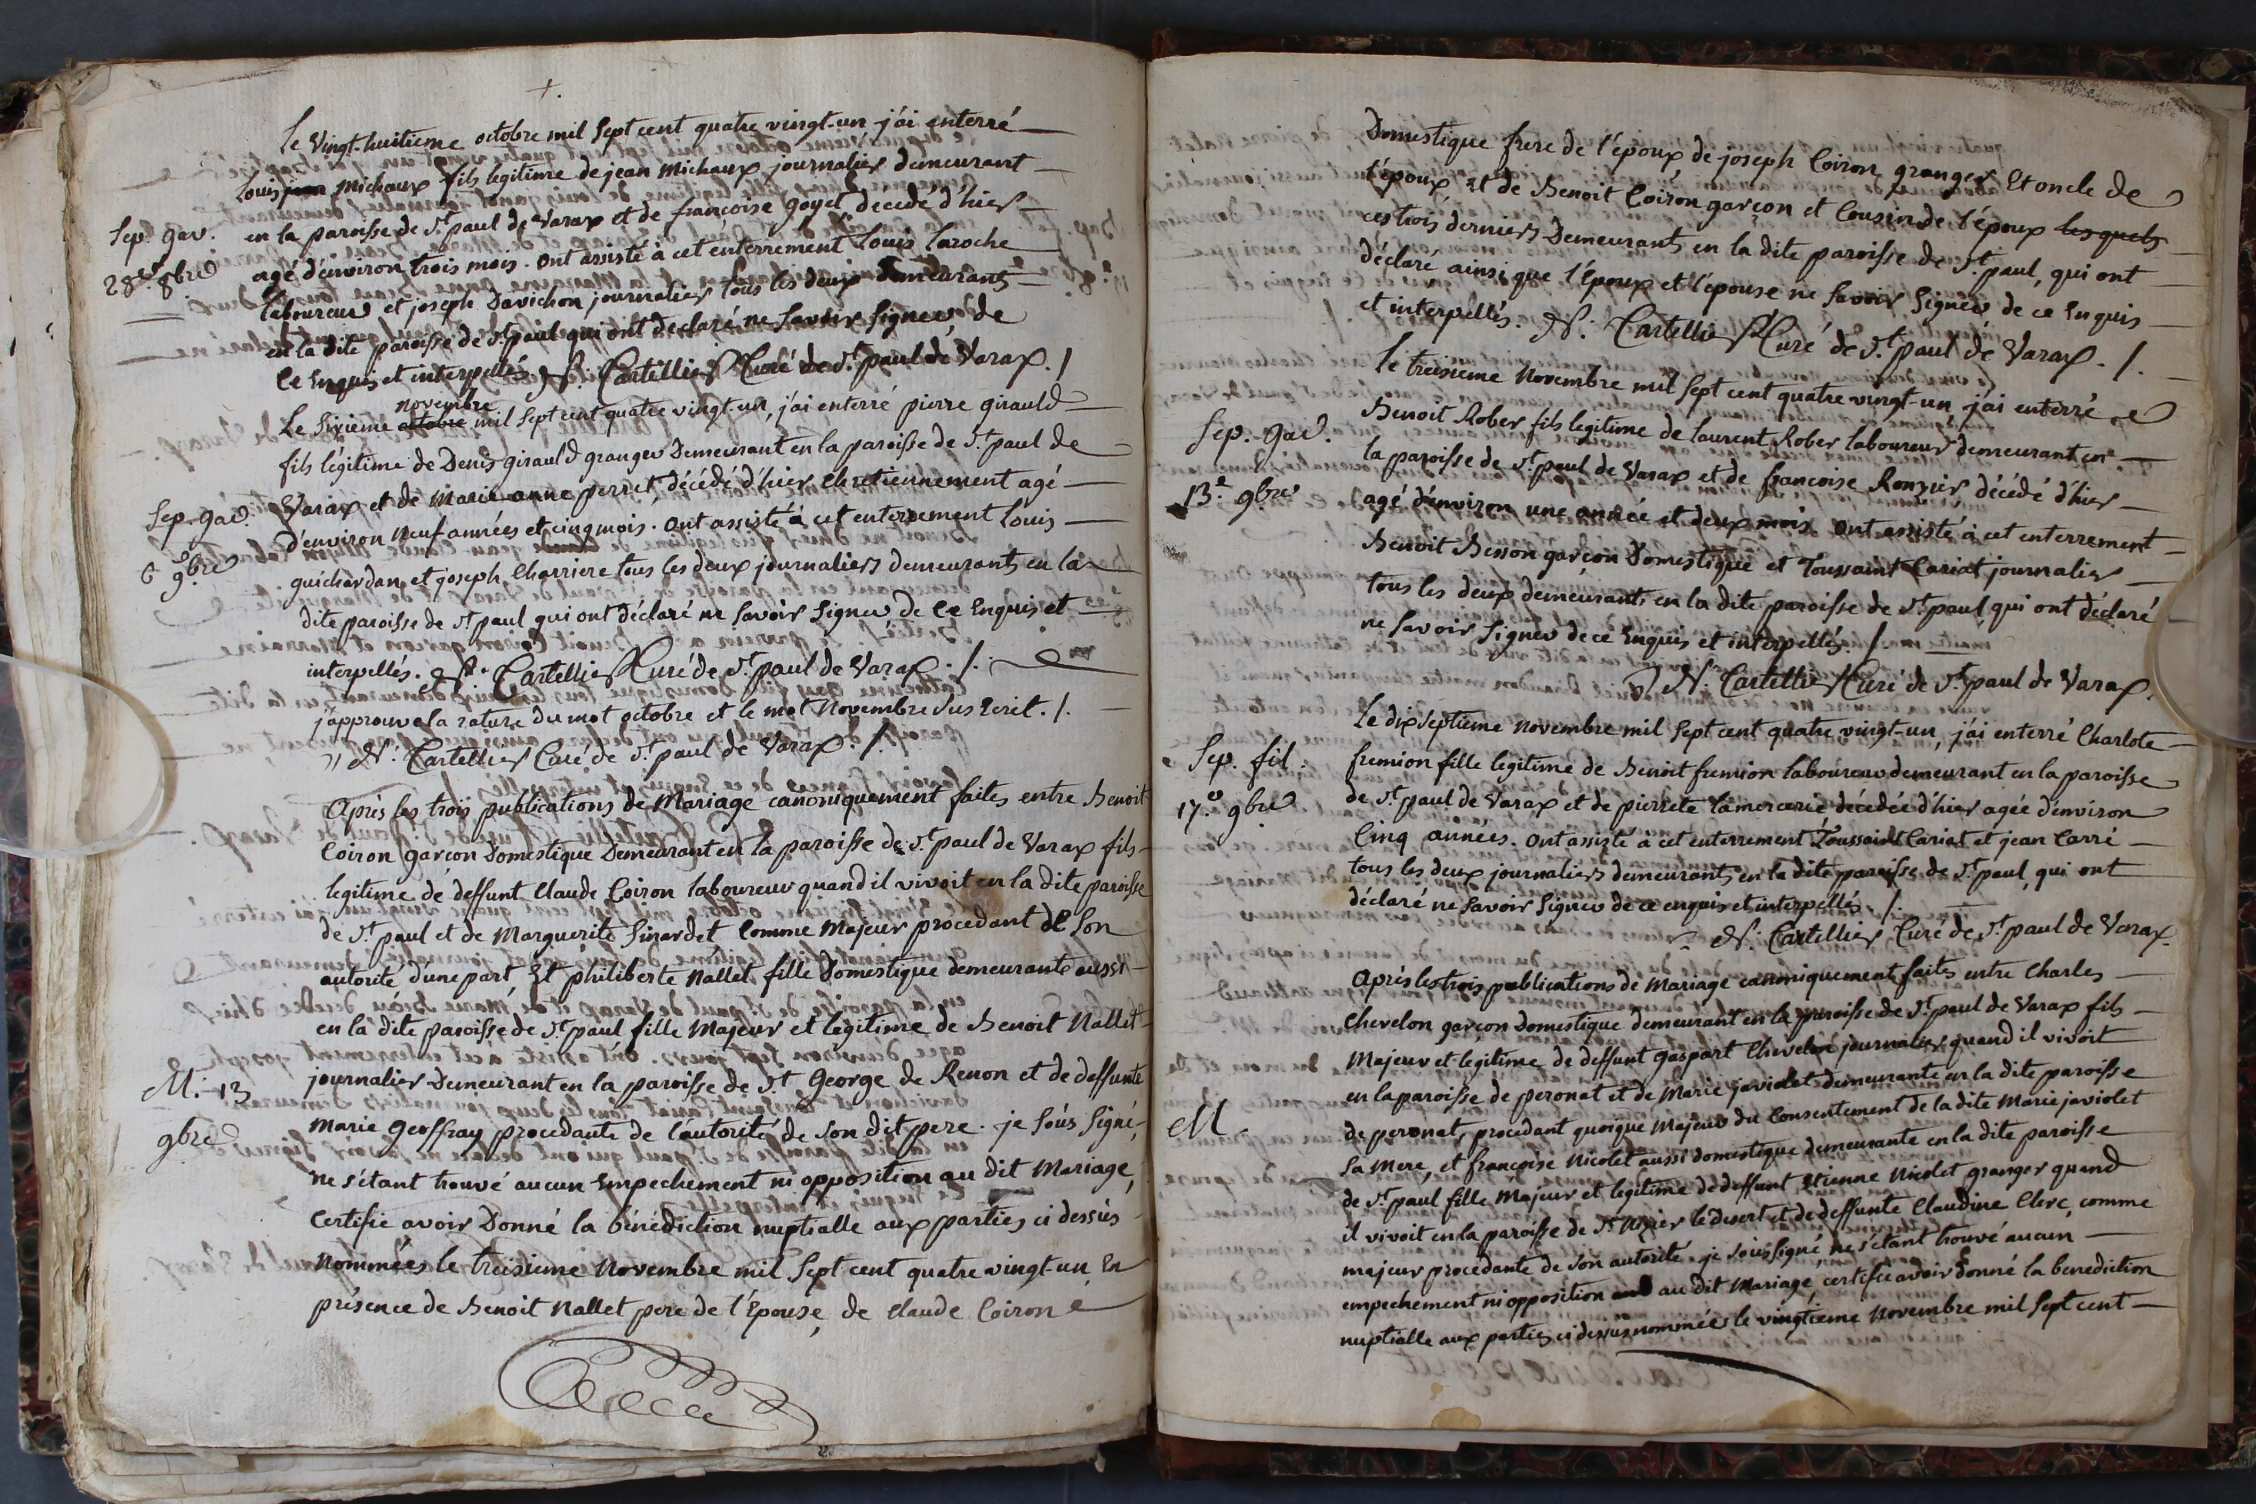 +.
Le vingt-huitieme octobre mil sept cent quatre vingt-un j'ai enterré
Louis jean Michaux fils legitime de jean Michaux journalier demeurant
en la paroisse de St. paul de Varax et de françoise goyet decedé d'hier
Sep. gar.
28e 8bre
agé d'environ trois mois. ont assisté à cet enterrement Louis Laroche
laboureur et joseph Davichon journalier tous les deux demeurants
en la dite paroisse de St. paul qui ont declaré ne savoir signer de
ce Enquis et interpellés. N. Cartellier Curé de St. paul de Varax. /
novembre
Le sixieme octobre mil sept cent quatre vingt-un, j'ai enterré pierre girauld
fils légitime de Denis girauld granger Demeurant en la paroisse de St. paul de
Varax et de Marie anne perret décédé d'hier chretiennement agé
Sep. gar.
6 9bre
d'environ neuf années et cinq mois. ont assisté à cet enterrement Louis
guichardan et joseph Charriere tous les deux journaliers demeurants en la
dite paroisse de St paul qui ont déclaré ne savoir signer de ce Enquis et
interpellés. N. Cartellier Curé de St. paul de Varax. /.
j'approuve la rature du mot octobre et le mot Novembre sus Ecrit. /.
N. Cartellier Curé de St paul de Varax. /.
Après les trois publications de Mariage canoniquement faites entre Benoit
Coiron garcon Domestique Demeurant en la paroisse de St. paul de Varax fils
legitime de deffunt Claude Coiron laboureur quand il vivoit en la dite paroisse
de St. paul et de Marguerite Sinardet Comme Majeur procedant de Son
autorité d'une part, Et philiberte Nallet fille Domestique demeurante aussi
en la dite paroisse de St. paul fille Majeur et legitime de Benoit Nallet
M. 13
9bre
journalier Demeurant en la paroisse de St George de Renon et de deffunte
Marie Geoffray procedante de l'autorité de son dit pere. je sous signé,
ne s'étant trouvé aucun Empechement ni opposition au dit Mariage,
Certifie avoir Donné la bénédiction nuptialle aux parties ci dessus
nommées le treisieme Novembre mil sept cent quatre vingt-un En
présence de Benoit Nallet pere de l'Epouse, de Claude Coiron
Domestique frere de l'époux, de joseph Coiron, granger Et oncle de
l'époux Et de Benoit Coiron garçon et Cousin de l'époux lesquels
ces trois derniers Demeurants en la dite paroisse de St. paul, qui ont
déclaré ainsi que l'époux et l'épouse ne savoir Signer de ce Enquis
et interpellés. N. Cartellier Curé de St. paul de Varax. /.
Le treisieme Novembre mil Sept cent quatre vingt-un j'ai enterré
Sep. gar.
13e 9bre
Benoit Rober fils legitime de laurent Rober laboureur demeurant en
la paroisse de St. paul de Varax et de francoise Ronzier décédé d'hier
agé d'environ une année et deux mois ont assisté à cet enterrement
Benoit Besson garcon Domestique et Toussaint Cariat journalier
tous les deux demeurants en la dite paroisse de St. paul, qui ont déclaré
ne savoir Signer de ce Enquis et interpellés. /.
N. Cartellier Curé de St. paul de Varax.
Le dix Septieme Novembre mil Sept cent quatre vingt-un, j'ai enterré Charlote
Sep. fil.
17e 9bre
fremion fille legitime de Benoit fremion laboureur demeurant en la paroisse
de St. paul de Varax et de pierrete lamercerie décédée d'hier agée d'environ
Cinq années. ont assisté à cet enterrement Toussaint Cariat et jean Carré
tous les deux journaliers demeurants en la dite paroisse de St. paul, qui ont
déclaré ne savoir Signer de ce enquis et interpellés /.
N. Cartellier Curé de St. paul de Varax.
Après les trois publications de Mariage canoniquement faites entre Charles
Chevelon garcon Domestique demeurant en la paroisse de St. paul de Varax fils
Majeur et legitime de deffunt gaspart Chevelon journalier quand il vivoit
en la paroisse de peronat et de Marie javiolet demeurante en la dite paroisse
M.
de peronat, procedant quoique Majeur du Consentement de la dite Marie javiolet
Sa Mere, et francoise Nicolet aussi domestique demeurante en la dite paroisse
de St. paul fille Majeur et legitime de deffunt etienne Nicolet granger quand
il vivoit en la paroisse de St Nizier le desert et de deffunte Claudine Clerc, comme
majeur procedante de son autorité. je sous signé, ne s'étant trouvé aucun
empechement ni opposition au dit Mariage, certifie avoir donné la benediction
nuptialle aux parties ci dessus nommées le vingtieme Novembre mil Sept cent